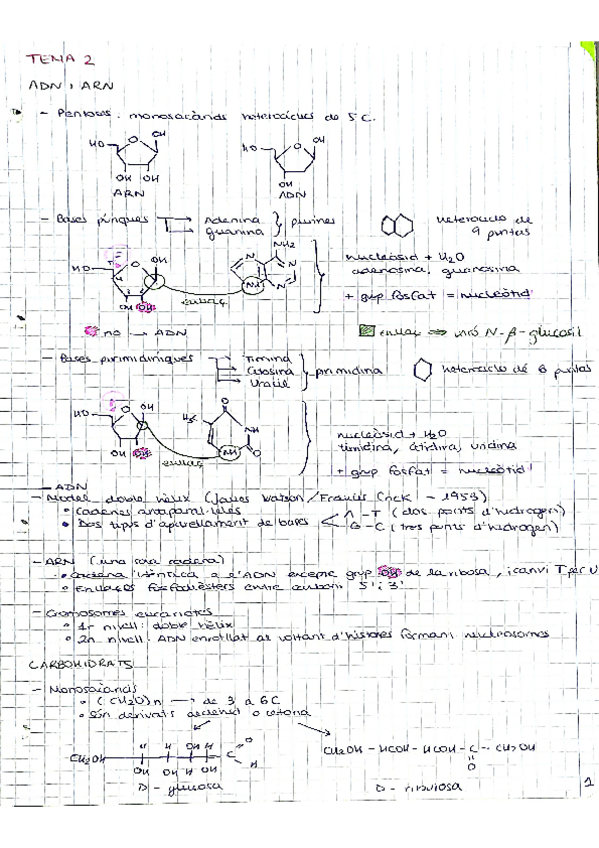 TEMA 2
ADN i ARN
- Pentoses: monosacàrids heterocíclics de 5 C.
HO OH O
OH OH
ARN
HO OH O
OH
ADN
- Bases púriques
Adenina
guanina
purines
heterociclo de
9 puntas
NH2
N N N NH
HO O OH
OH OH
enllaç
nucleòsid + H2O
adenosina, guanosina
+ grup fosfat = nucleòtid
no → ADN
enllaç ⇒ unió N-β-glucosil
- Bases pirimidíniques
Timina
Citosina
Uracil
pirimidina
heterociclo de 6 puntas
HO O OH
OH OH
H3C O NH O NH
enllaç
nucleòsid + H2O
timidina, citidina, uridina
+ grup fosfat = nucleòtid
- ADN
- Model doble hèlix (James Watson / Francis Crick - 1953)
• Cadenes antiparal·leles
• Dos tipus d'aparellament de bases
A - T (dos ponts d'hidrogen)
G - C (tres ponts d'hidrogen)
- ARN (una sola cadena)
• Cadena idèntica a l'ADN excepte grup OH de la ribosa, i canvi T per U
• Enllaços fosfodièsters entre carboni 5' i 3'
- Cromosomes eucariotes
• 1r nivell: doble hèlix
• 2n nivell: ADN enrotllat al voltant d'histones formant nucleosomes
CARBOHIDRATS
- Monosacàrids
• (CH2O)n → de 3 a 6 C
• Són derivats aldehid o cetona
H H OH H O
CH2OH C
OH OH H OH H
D - glucosa
CH2OH - HCOH - HCOH - C - CH2OH
O
D - ribulosa
1